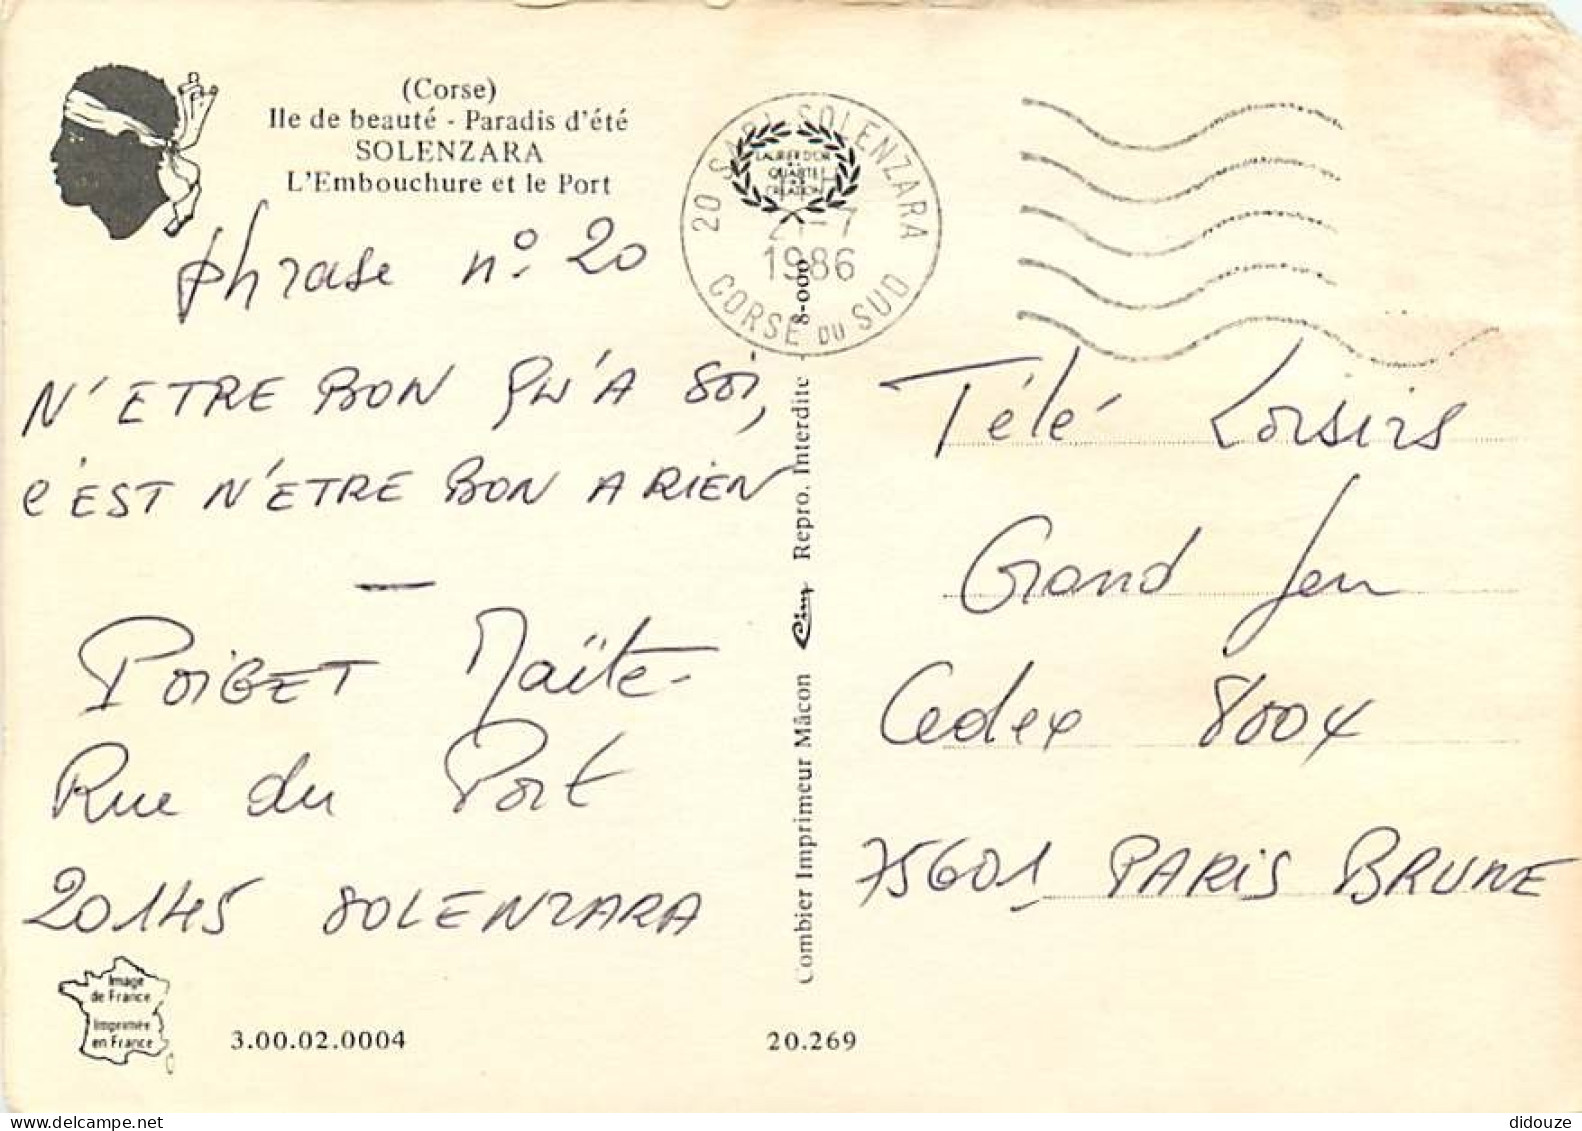 (Corse)
Ile de beauté - Paradis d'été
SOLENZARA
L'Embouchure et le Port
phrase n° 20
N'ETRE BON QU'A SOI,
C'EST N'ETRE BON A RIEN
—
POIGET Maïte
Rue du Port
20145 SOLENZARA
Image
de France
Imprimée
en France
3.00.02.0004
20.269
Combier Imprimeur Mâcon Cim Repro. Interdite - 8-000
LAURIER D'OR
QUALITE
CREATION
20 SARI-SOLENZARA
1986
CORSE DU SUD
Télé Loisirs
Grand Jeu
Cedex 8004
75601 PARIS BRUNE
didouze